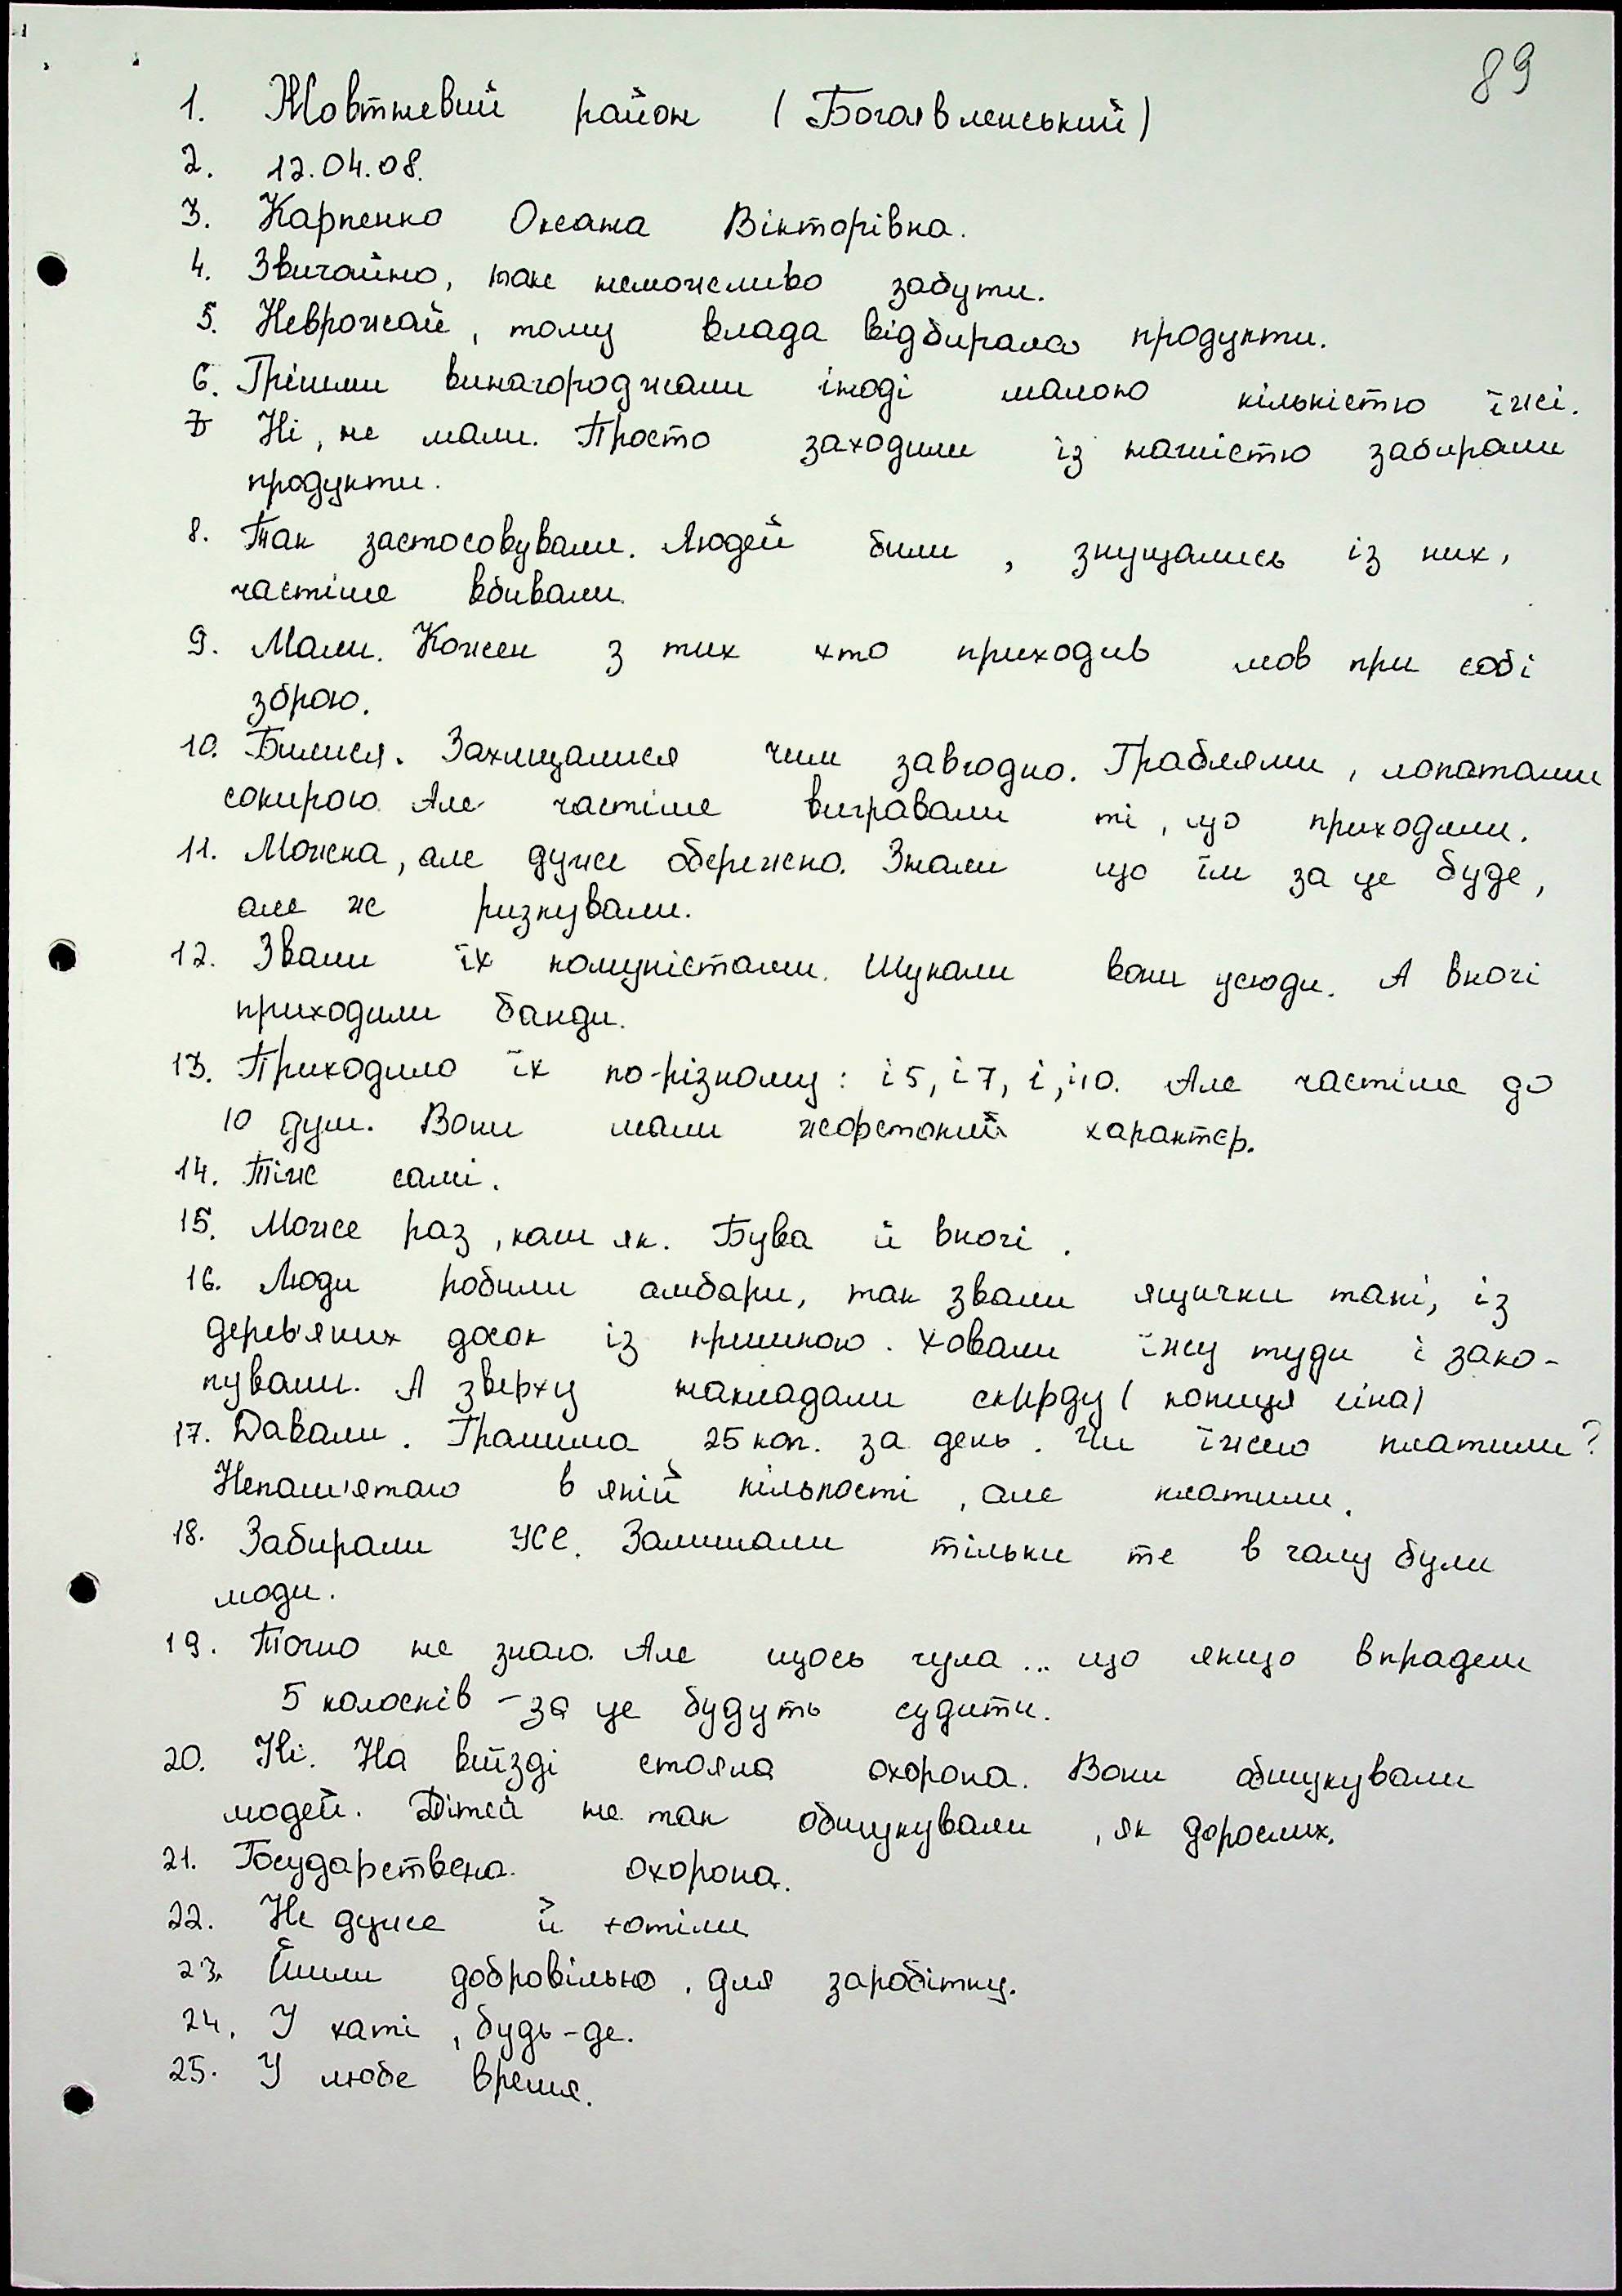 89
1. Жовтневий район (Богоявленський)
2. 12.04.08.
3. Карпенко Оксана Вікторівна.
4. Звичайно, таке неможливо забути.
5. Неврожай, тому влада відбирала продукти.
6. Грішми винагороджали іноді малою кількістю їжі.
7 Ні, не мали. Просто заходили із наглістю забирали
продукти.
8. Так застосовували. Людей били, знущались із них,
частіше вбивали.
9. Мали. Кожен з тих хто приходив мав при собі
зброю.
10. Билися. Захищалися чим завгодно. Граблями, лопатами
сокирою. Але частіше вигравали ті, що приходили.
11. Можна, але дуже обережно. Знали що їм за це буде,
але не ризкували.
12. Звали їх комуністами. Шукали вони усюди. А вночі
приходили банди.
13. Приходило їх по-різному: і 5, і 7, і, і 10. Але частіше до
10 душ. Вони мали жорстокий характер.
14. Тіж самі.
15. Може раз, каш як. Бува й вночі.
16. Люди робили амбари, так звали ящички такі, із
дерев'яних досок із кришкою. Ховали їжу туди і зако-
пували. А зверху накладали скирду (копиця сіна)
17. Давали. Грамима 25 коп. за день. Чи їжею платили?
Непам'ятаю в якій кількості, але платили.
18. Забирали усе. Залишали тільки те в чому були
люди.
19. Точно не знаю. Але щось чула... що якщо вкрадеш
5 колосків - за це будуть судити.
20. Ні. На виїзді стояла охорона. Вони обшукували
людей. Дітей не так обшукували, як дорослих.
21. Государствена охорона.
22. Не дуже й хотіли
23. Йшли добровільно, для заробітку.
24. У хаті, будь-де.
25. У любе время.